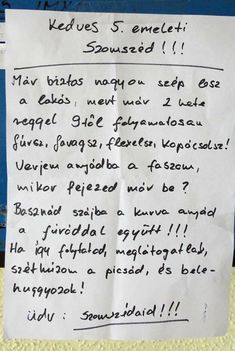 Kedves 5. emeleti
Szomszéd!!!
Már biztos nagyon szép lesz
a lakás, mert már 2 hete
reggel 9től folyamatosan
fúrsz, faragsz, flexelsz, kopácsolsz!
Verjem anyádba a faszom,
mikor fejezed már be?
Basznád szájba a kurva anyád
a fúróddal együtt!!!
Ha így folytatod, meglátogatlak,
széthúzom a picsád, és bele-
huggyozok!
Üdv: Szomszédaid!!!